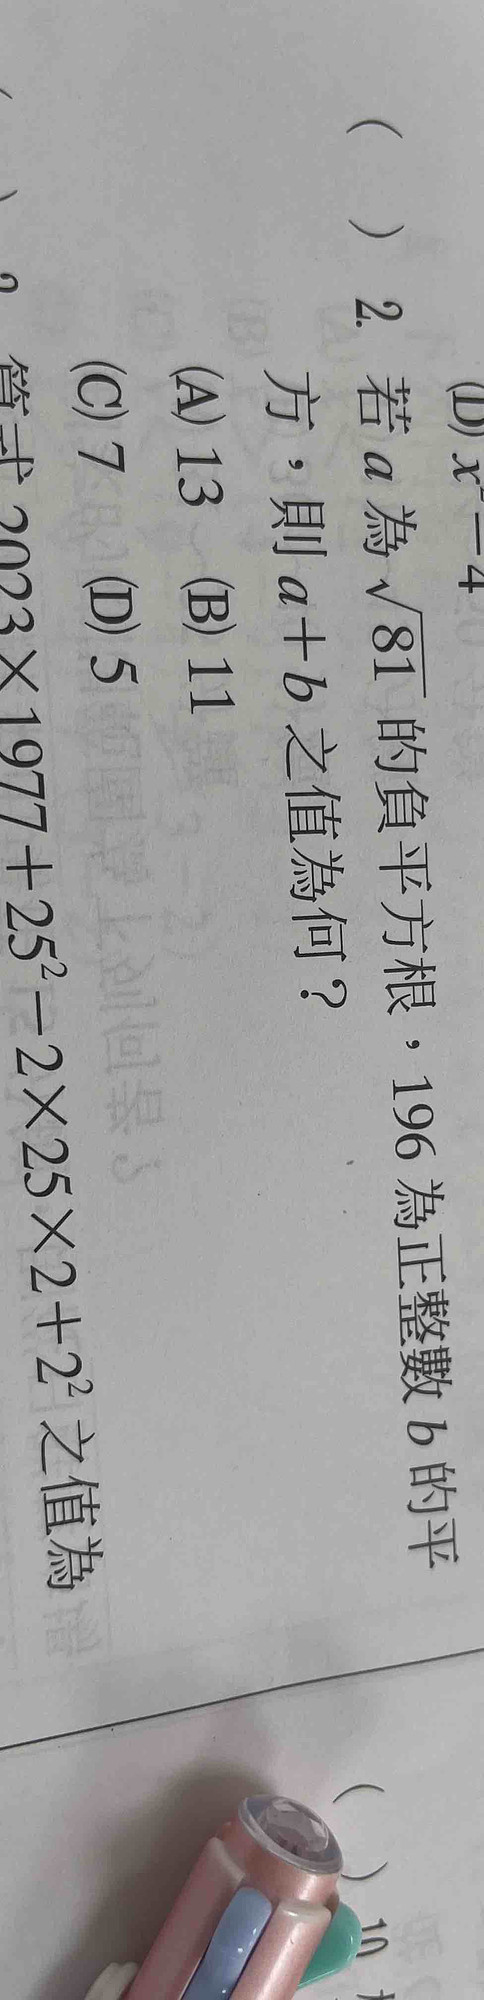 (D) x²－4
( ) 2. 若 a 為 √81 的負平方根，196 為正整數 b 的平
方，則 a＋b 之值為何？
(A) 13 (B) 11
(C) 7 (D) 5
( ) 3. 算式 2023×1977＋25²－2×25×2＋2² 之值為
( ) 10.